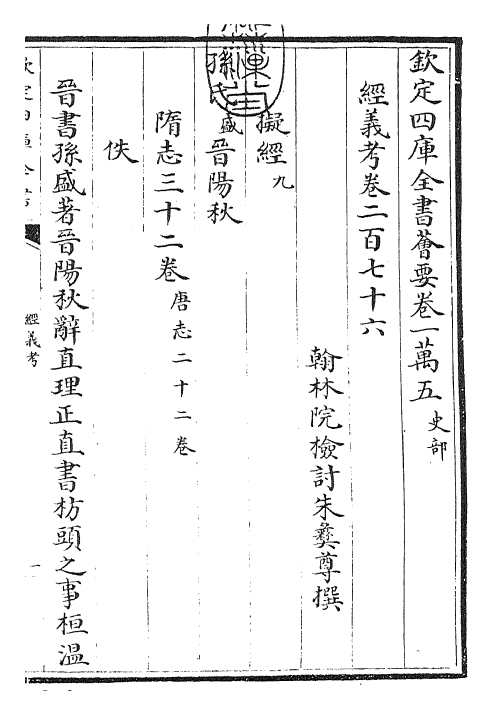 欽定四庫全書薈要卷一萬五 史部
經義考卷二百七十六
翰林院檢討朱彝尊撰
擬經九
孫氏盛晉陽秋
隋志三十二卷唐志二十二卷
佚
晉書孫盛著晉陽秋辭直理正直書枋頭之事桓溫
經義考
一